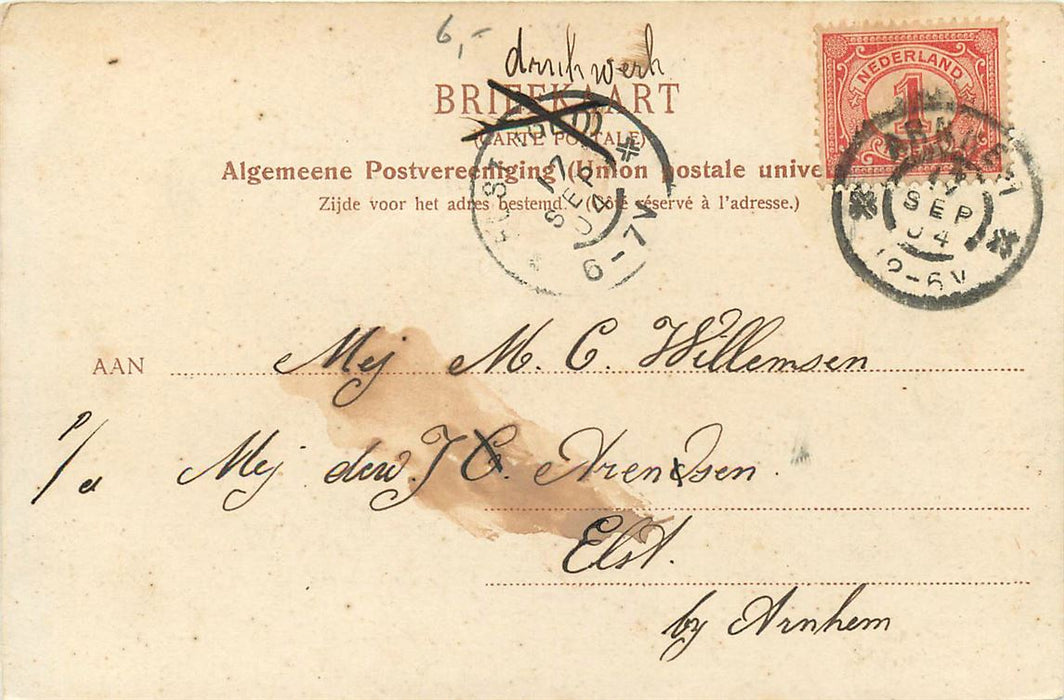 6,-
drukwerk
BRIEFKAART
(CARTE POSTALE)
Algemeene Postvereeniging (Union postale unive
Zijde voor het adres bestemd. (Côté réservé à l'adresse.)
NEDERLAND
1
SEP
04
12-6V
ELST (GLD)
17
SEP
04
6-7V
AAN Mej M. C. Willemsen
p/a Mej dew. J C. Arendsen.
Elst.
by Arnhem